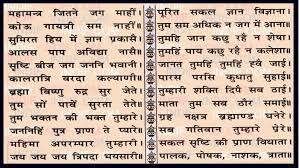 महामन्त्र जितने जग माहीं।
कोऊ गायत्री सम नाहीं॥
सुमिरत हिय में ज्ञान प्रकासै।
आलस पाप अविद्या नासै॥
सृष्टि बीज जग जननि भवानी।
कालरात्रि वरदा कल्याणी॥
ब्रह्मा विष्णु रुद्र सुर जेते।
तुम सों पावें सुरता तेते॥
तुम भक्तन की भक्त तुम्हारे।
जननिहिं पुत्र प्राण ते प्यारे॥
महिमा अपरम्पार तुम्हारी।
जय जय जय त्रिपदा भयहारी॥
पूरित सकल ज्ञान विज्ञाना।
तुम सम अधिक न जग में आना॥
तुमहिं जानि कछु रहै न शेषा।
तुमहिं पाय कछु रहै न कलेशा॥
जानत तुमहिं तुमहिं ह्वै जाई।
पारस परसि कुधातु सुहाई॥
तुम्हरी शक्ति दिपै सब ठाई।
माता तुम सब ठौर समाई॥
ग्रह नक्षत्र ब्रह्माण्ड घनेरे।
सब गतिवान तुम्हारे प्रेरे॥
सकल सृष्टि की प्राण विधाता।
पालक, पोषक, नाशक, त्राता॥